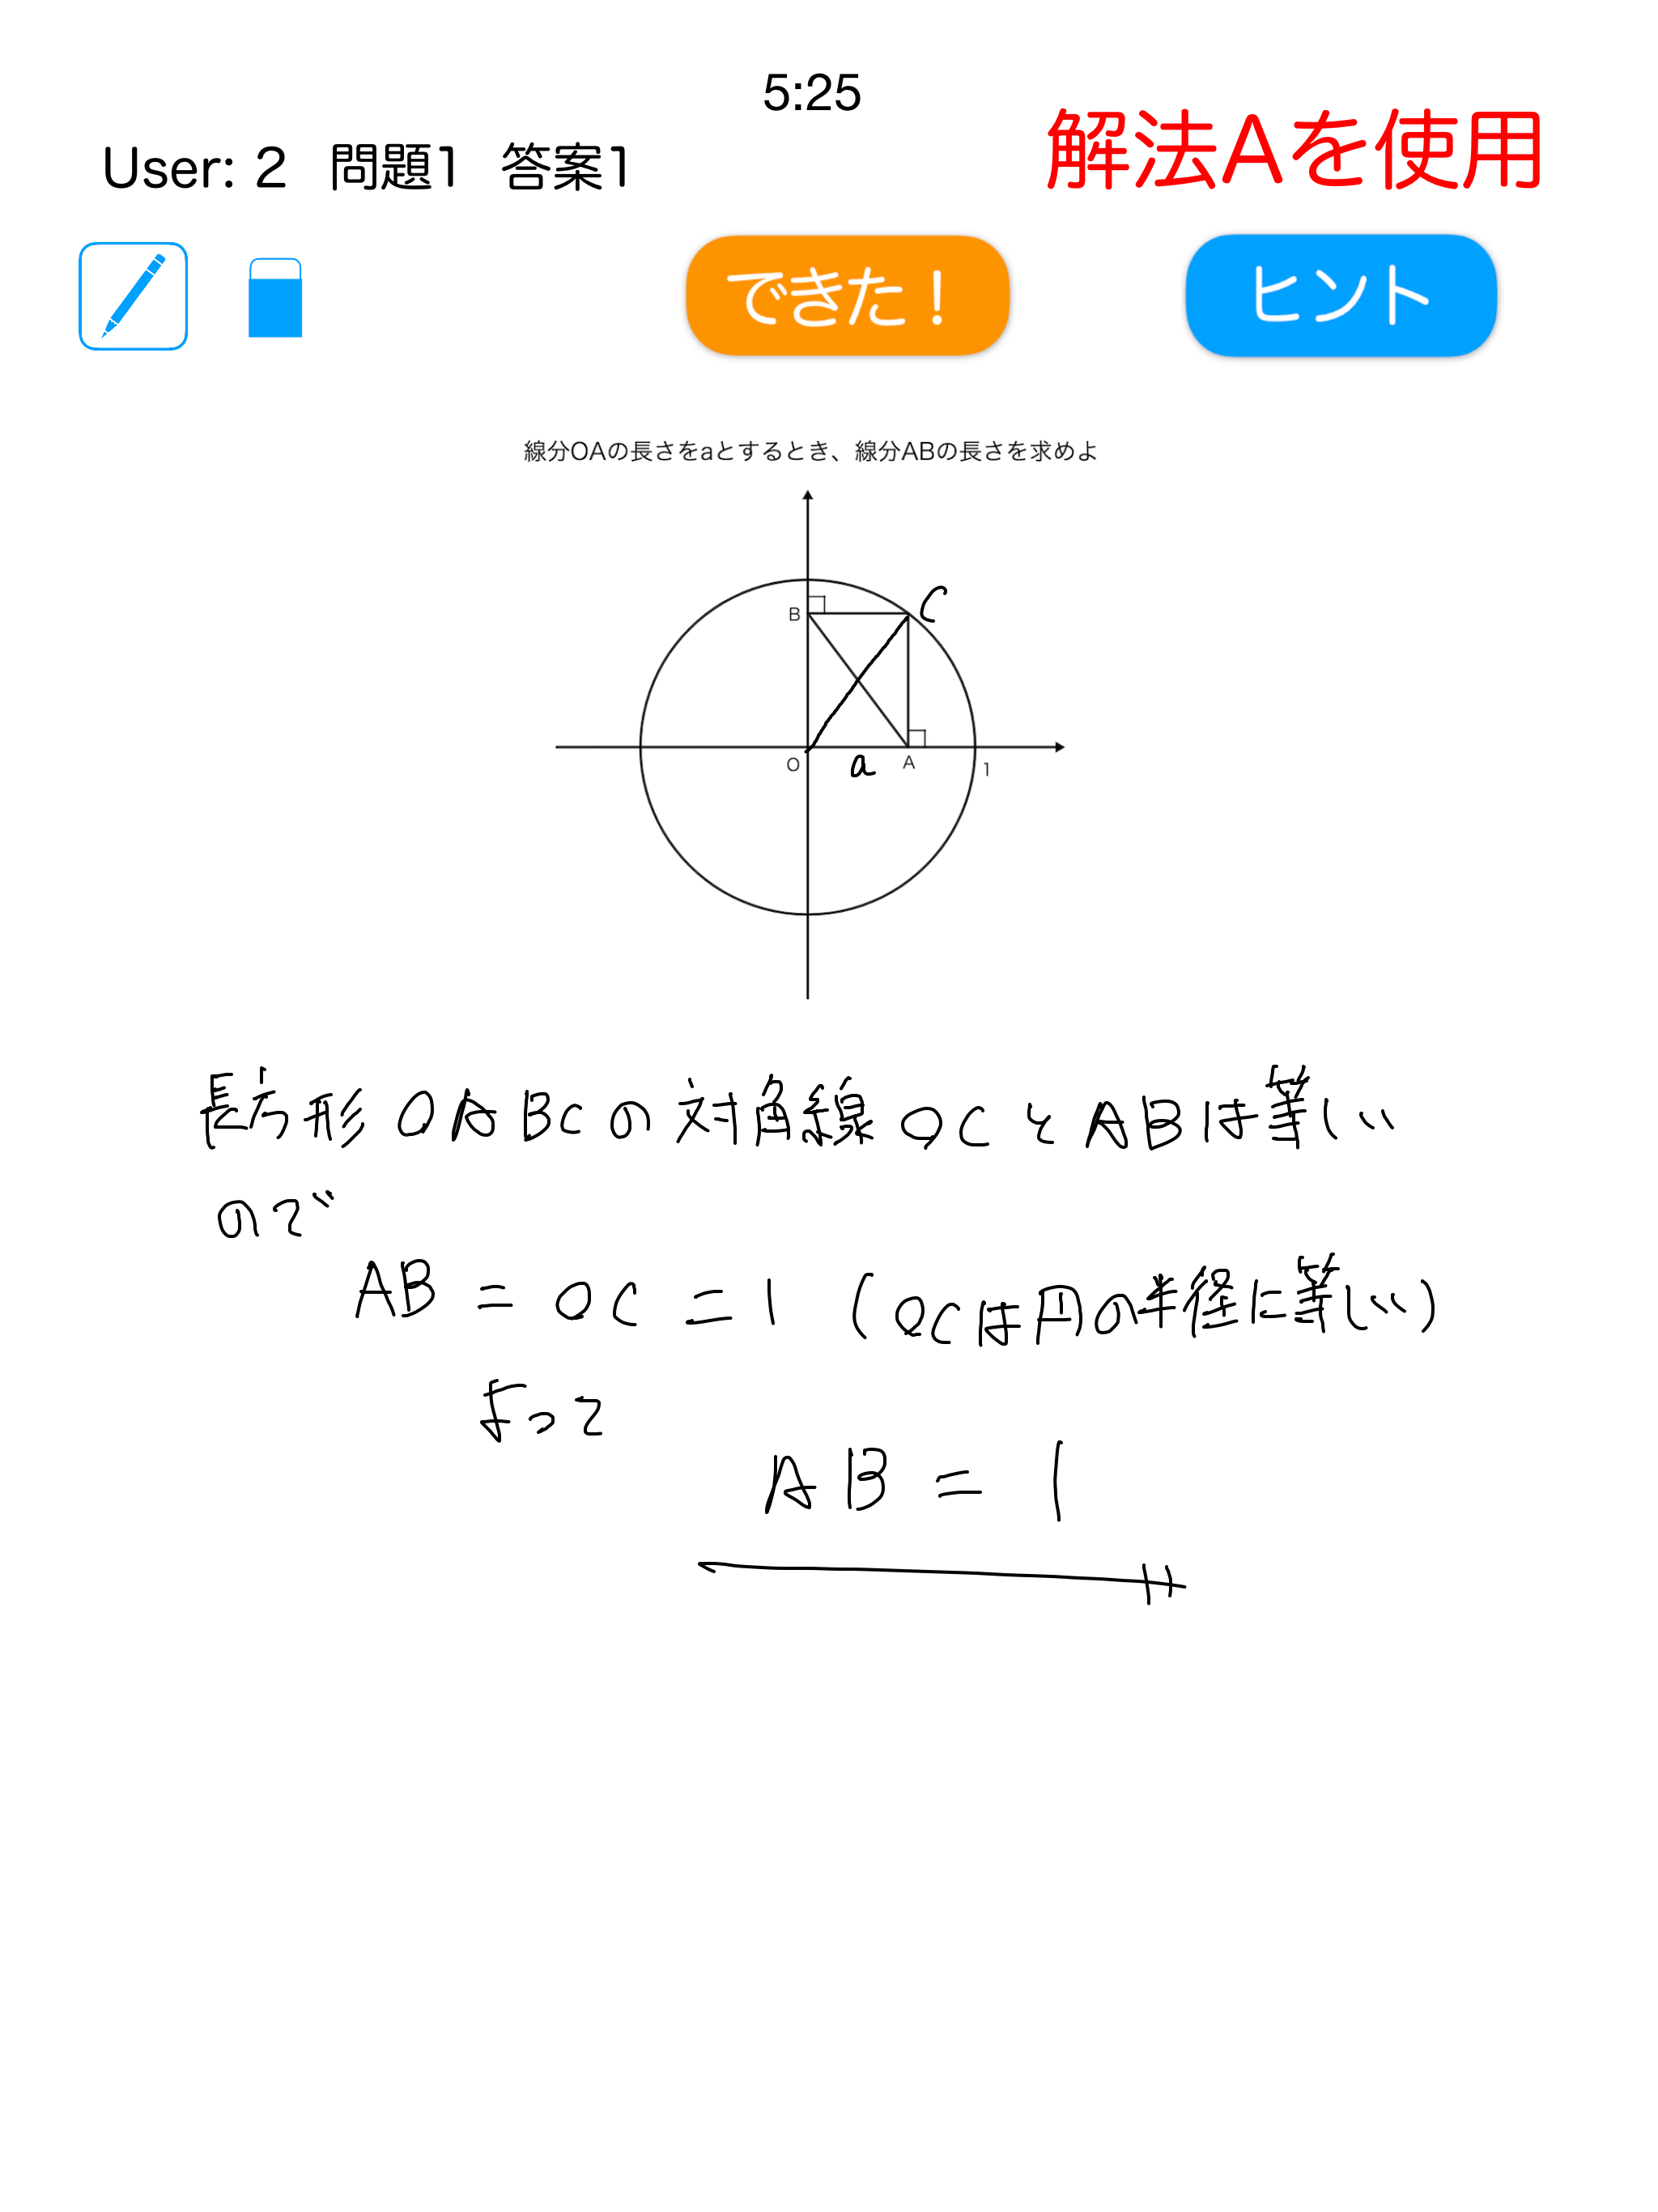 5:25
User: 2 問題1 答案1
解法Aを使用
できた！
ヒント
線分OAの長さをaとするとき、線分ABの長さを求めよ
B
C
O
a
A
1
長方形OABCの対角線OCとABは等しい
ので
AB = OC = 1 (OCは円の半径に等しい)
よって
AB = 1